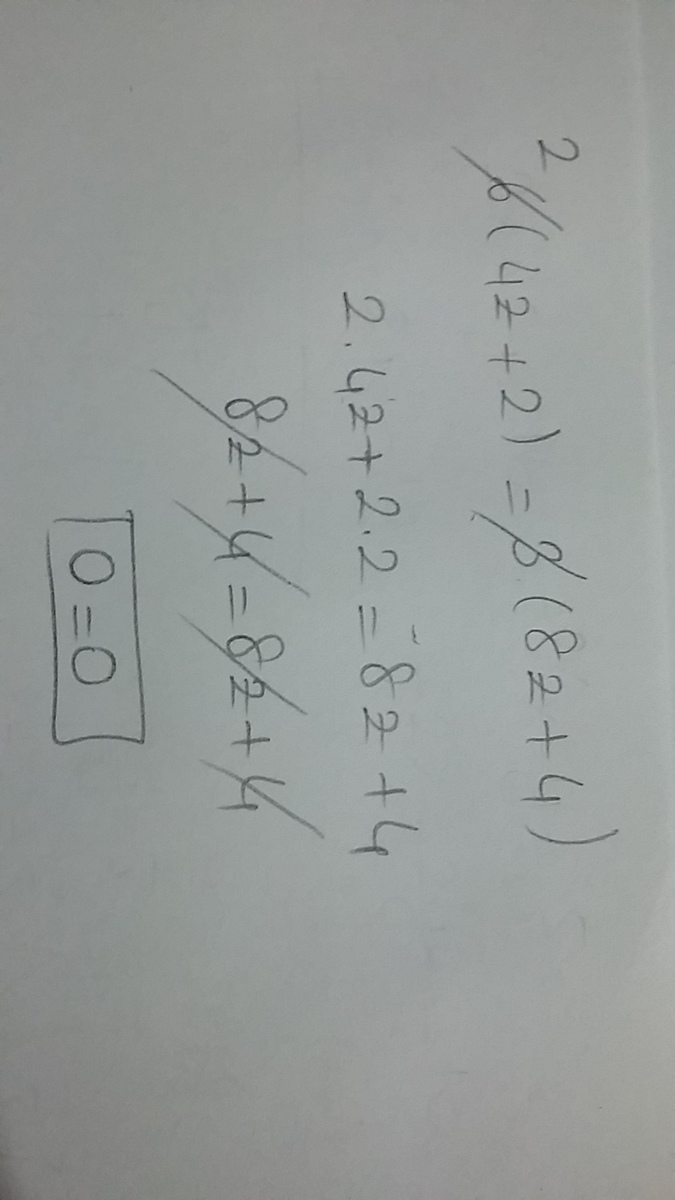 2
6(4z+2)=3(8z+4)
2.4z+2.2=8z+4
8z+4=8z+4
0=0